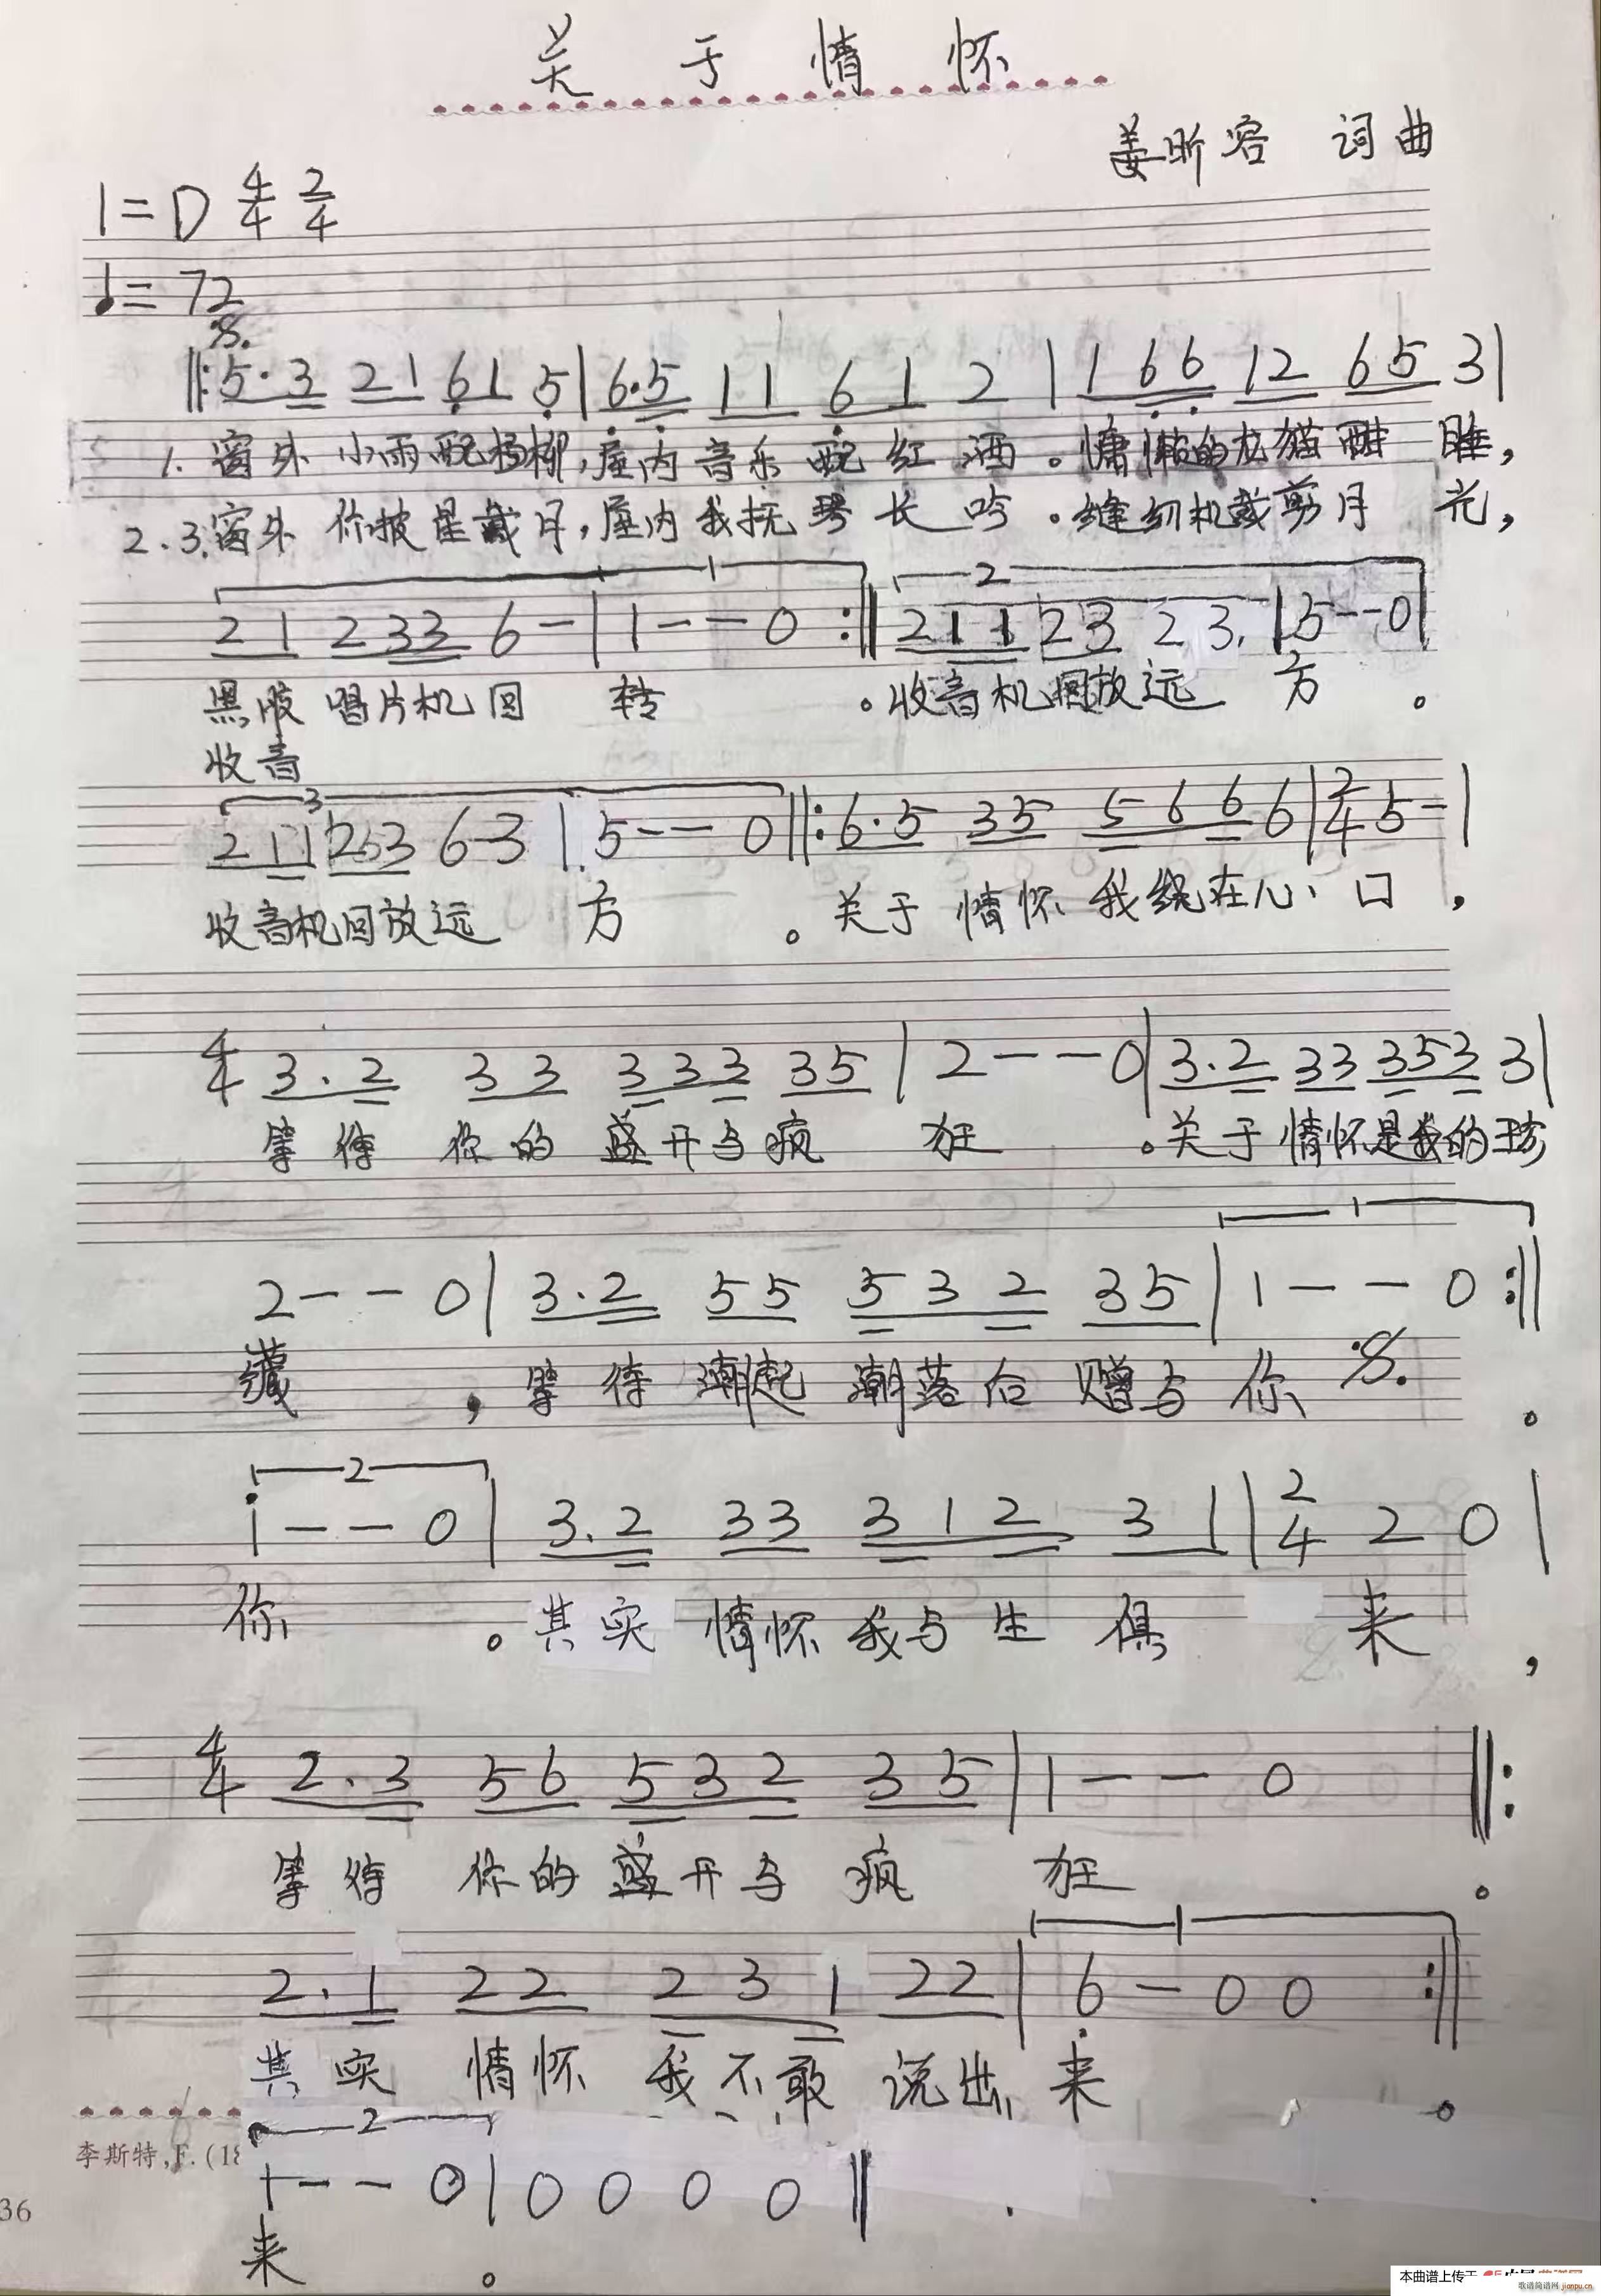 关于情怀
姜昕容 词曲
1=D 4/4 2/4
♩=72
𝄋
‖:5·3 21 61 5|6·5 11 6 1 2|1 66 12 65 3|
1.窗外小雨配杨柳,屋内音乐配红酒。慵懒的龙猫酣睡,
2.3.窗外你披星戴月,屋内我抚琴长吟。缝纫机裁剪月光,
1 2
21 233 6-|1--0:‖211 23 23.|5--0|
黑胶唱片机回转。收音机回放远方。
收音
3
211 253 6-3|5--0‖:6·5 35 566 6|2/4 5-|
收音机回放远方。关于情怀我绕在心口,
4/4 3.2 33 333 35|2--0|3.2 33 353 3|
等待你的盛开与疯狂。关于情怀是我的珍
1
2--0|3.2 55 532 35|1--0:‖
藏,等待潮起潮落后赠与你 𝄋。
2
i--0|3.2 33 312 31|2/4 2 0|
你。其实情怀我与生俱来,
4/4 2.3 56 532 35|1--0‖:
等待你的盛开与疯狂。
1
2.1 22 231 22|6-00:‖
其实情怀我不敢说出来。
李斯特,F.(18
2
1--0|0000‖
36
来。
本曲谱上传于
歌谱简谱网 jianpu.cn